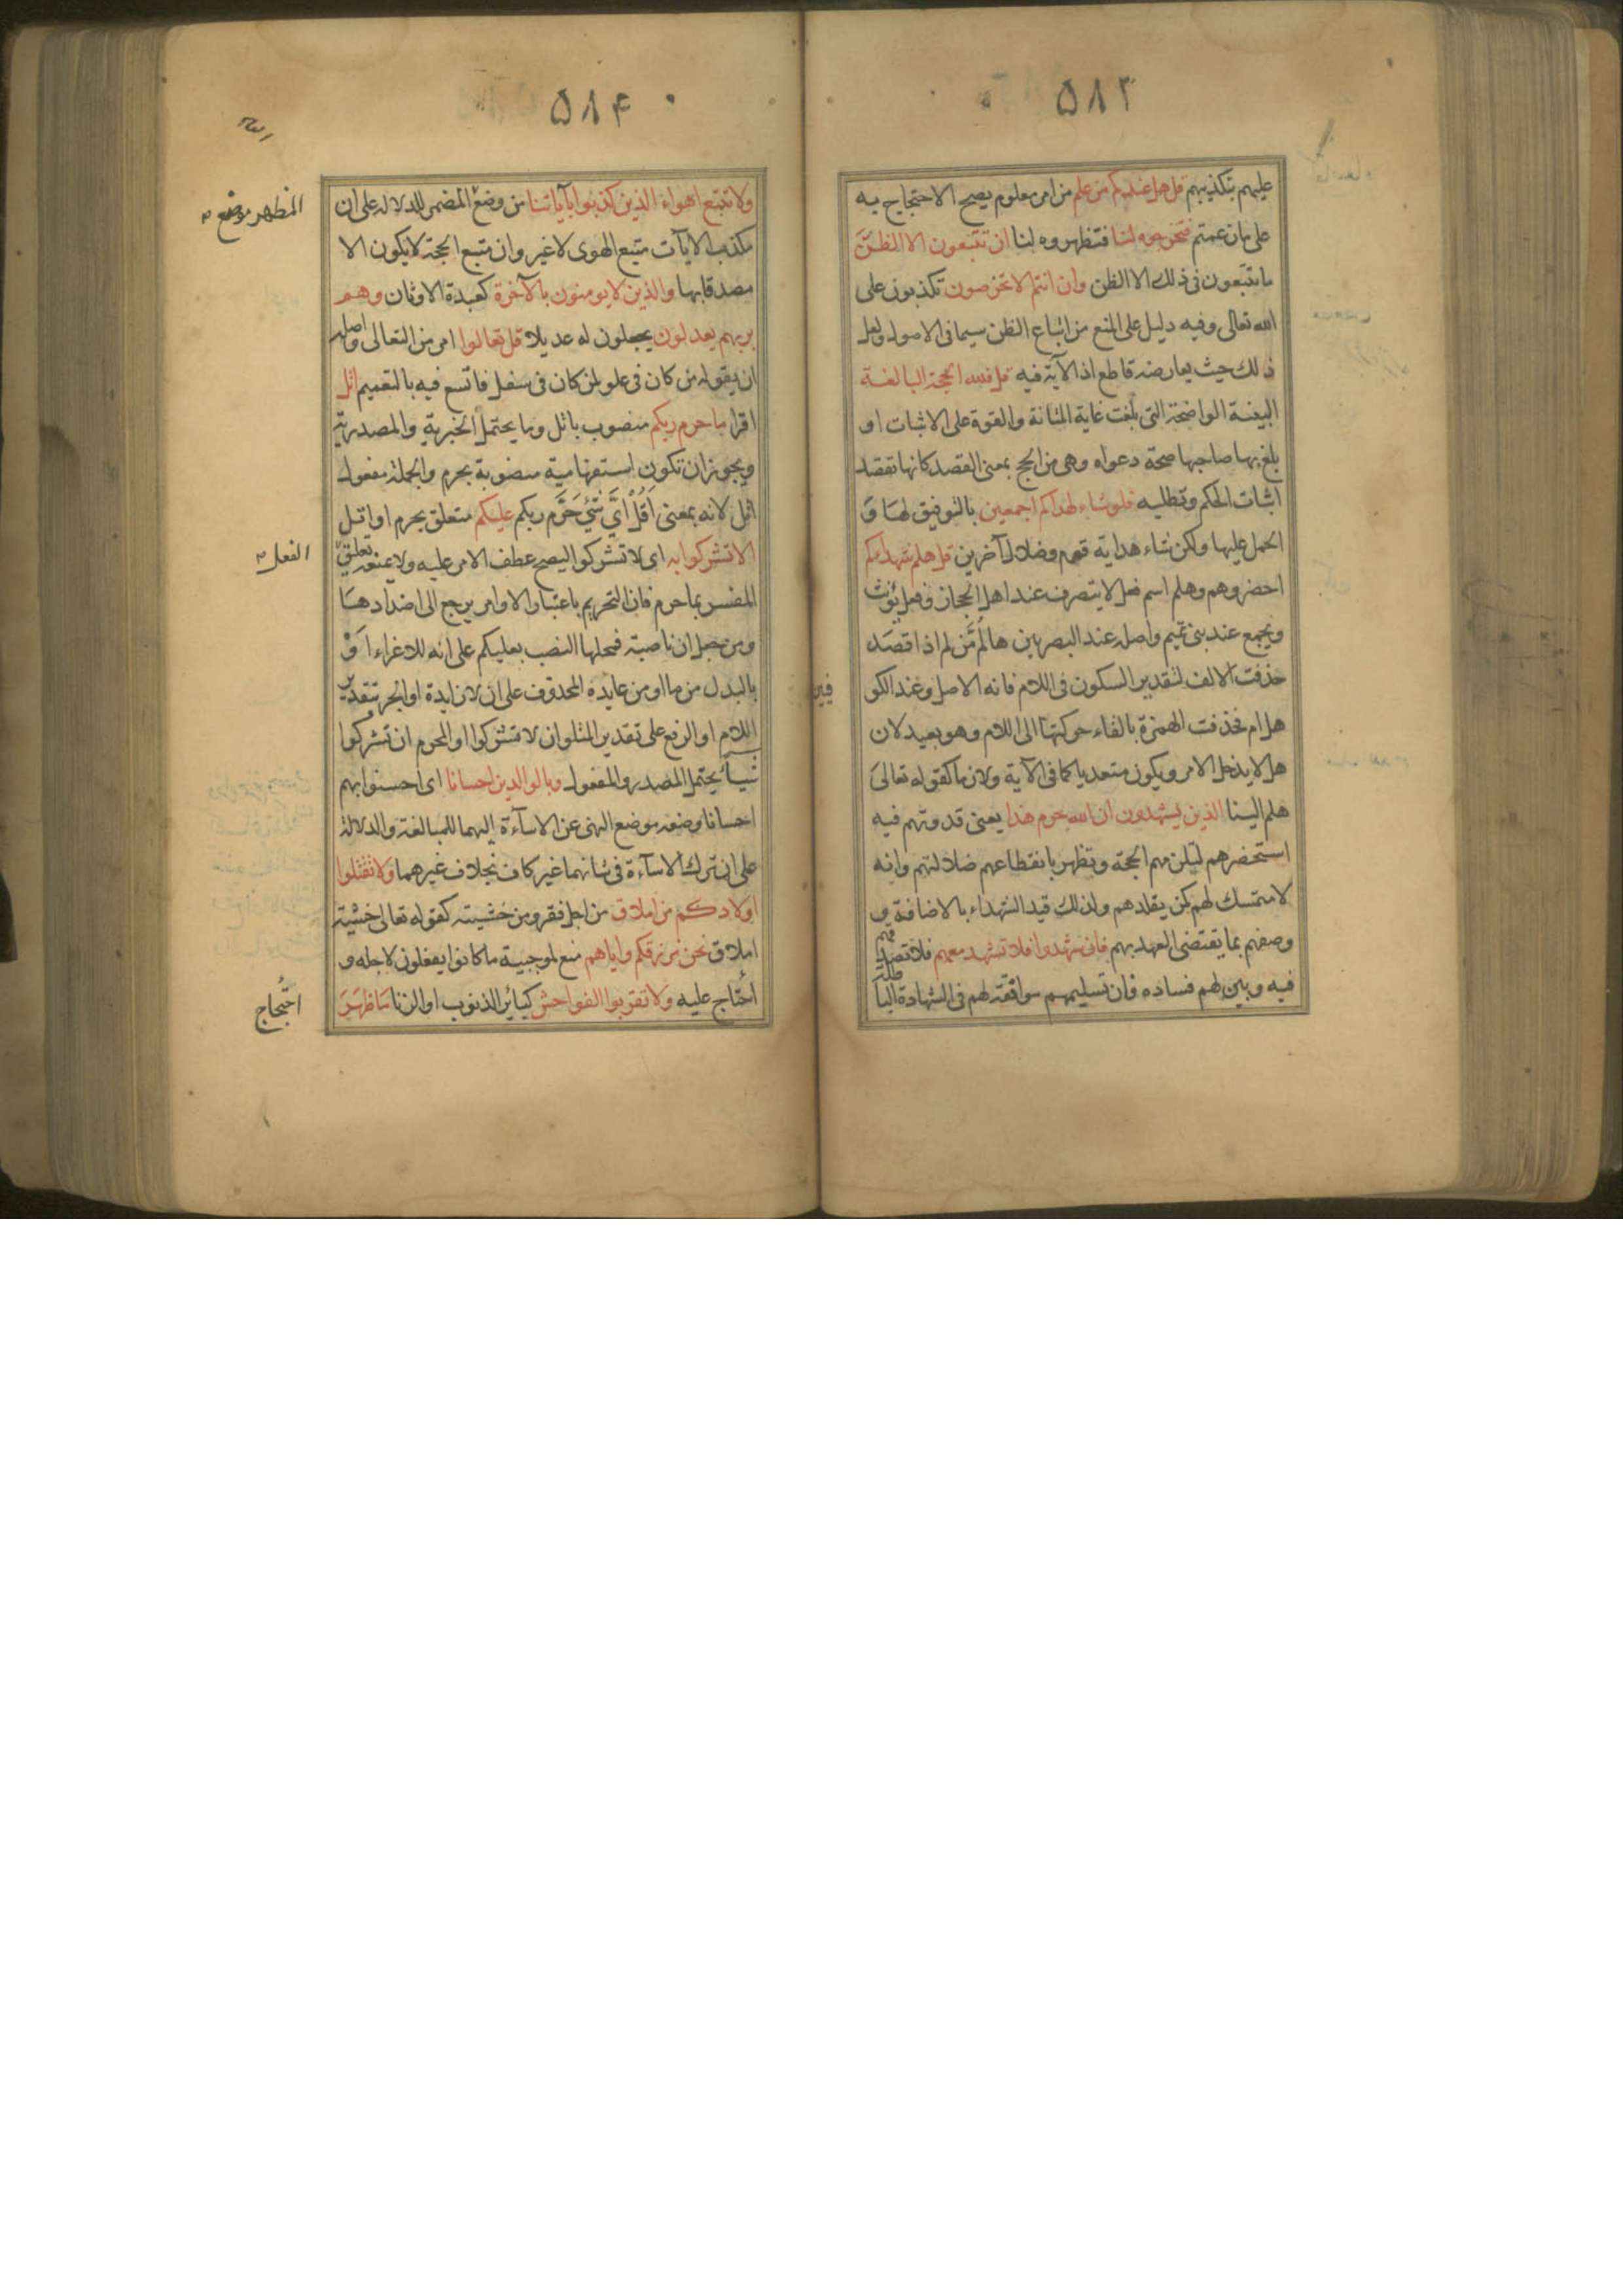 ۵۸۳
عليهم بتكذيبهم قل هل عندكم من علم من امر معلوم يصح الاحتجاج به
على ما زعمتم فتخرجوه لنا فتظهروه لنا ان تتبعون الا الظن
ما تتبعون فى ذلك الا الظن وان انتم الا تخرصون تكذبون على
الله تعالى وفيه دليل على المنع من اتباع الظن سيما فى الاصول ولعل
ذلك حيث يعارضه قاطع اذ الآية فيه قل فلله الحجة البالغة
البينة الواضحة التى بلغت غاية المتانة والقوة على الاثبات او
بلغ بها صاحبها صحة دعواه وهى من الحج بمعنى القصد كانها تقصد
اثبات الحكم وتطلبه فلو شاء لهداكم اجمعين بالتوفيق لها و
الحمل عليها ولكن شاء هداية قوم وضلال آخرين قل هلم شهداءكم
احضروهم وهلم اسم فعل لا يتصرف عند اهل الحجاز وفعل يؤنث
ويجمع عند بنى تميم واصله عند البصريين هالُمَّ من لم اذا قصد
حذفت الالف لتقدير السكون فى اللام فانه الاصل وعند الكو
فيين
هل ام فحذفت الهمزة بالقاء حركتها الى اللام وهو بعيد لان
هل لا يدخل الامر ويكون متعديا كما فى الآية ولازما كقوله تعالى
هلم الينا الذين يشهدون ان الله حرم هذا يعنى قدوتهم فيه
استحضرهم ليلزمهم الحجة وتظهر بانقطاعهم ضلالتهم وانه
لا متمسك لهم كمن يقلدهم ولذلك قيد الشهداء بالاضافة و
وصفهم بما يقتضى العهد بهم فان شهدوا فلا تشهد معهم فلا تصدقهم
فيه وبين لهم فساده فان تسليمهم موافقة لهم فى الشهادة الباطلة
۵۸۴
ولا تتبع اهواء الذين كذبوا بآياتنا من وضع المضمر للدلالة على ان
المظهر موضع
مكذب الآيات متبع الهوى لا غير وان متبع الحجة لا يكون الا
مصدقا بها والذين لا يومنون بالآخرة كعبدة الاوثان وهم
بربهم يعدلون يجعلون له عديلا قل تعالوا امر من التعالى واصله
ان يقوله من كان فى علو لمن كان فى سفل فاتسع فيه بالتعميم اتل
اقرا ما حرم ربكم منصوب باتل وما يحتمل الخبرية والمصدرية
ويجوز ان تكون استفهامية منصوبة بحرم والجملة مفعول
اتل لانه بمعنى اَقُلْ اَيَّ شَيْءٍ حَرَّمَ ربكم عليكم متعلق بحرم او اتل
الا تشركوا به اى لا تشركوا ليصح عطف الامر عليه ولا يمنعه تعليق
الفعل
المفسر بما حرم فان التحريم باعتبار الاوامر يرجع الى اضدادها
ومن جعل ان ناصبة فمحلها النصب بعليكم على انه للاغراء اَوْ
بالبدل من ما او من عايده المحذوف على ان لا زايدة او الجر بتقدير
اللام او الرفع على تقدير المتلو ان لا تشركوا او المحرم ان تشركوا
شيئا يحتمل المصدر والمفعول وبالوالدين احسانا اى احسنوا بهم
احسانا وضعه موضع النهى عن الاسآءة اليهما للمبالغة والدلالة
على ان ترك الاسآءة فى شانهما غير كاف بخلاف غيرهما ولا تقتلوا
اولادكم من املاق من اجل فقر ومن خشيته كقوله تعالى خشية
املاق نحن نرزقكم واياهم منع لموجبية ما كانوا يفعلون لاجله و
احتاج عليه ولا تقربوا الفواحش كبائر الذنوب او الزنا ما ظهر
احتجاج